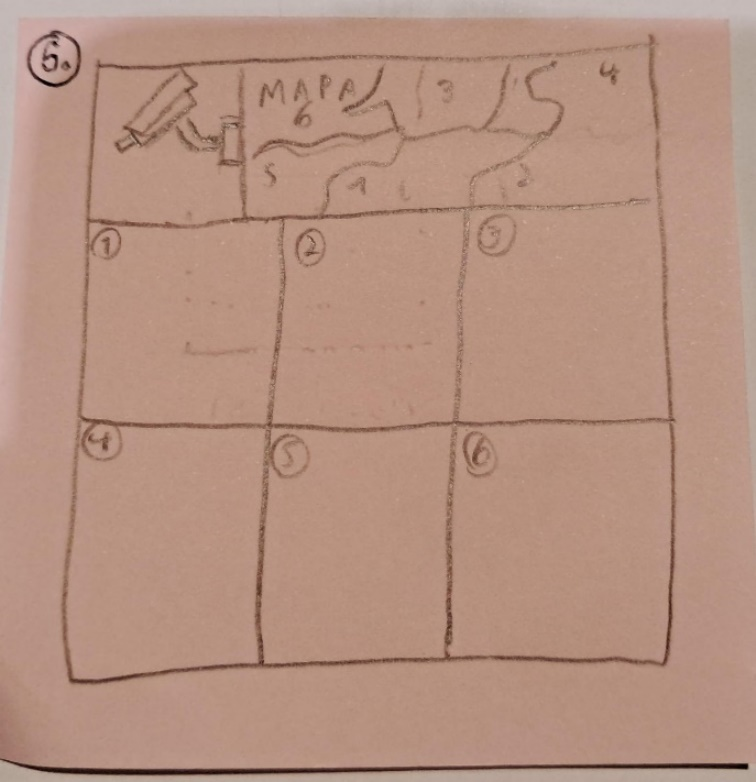 6.
MAPA
3
4
6
5
1
2
1
2
3
4
5
6